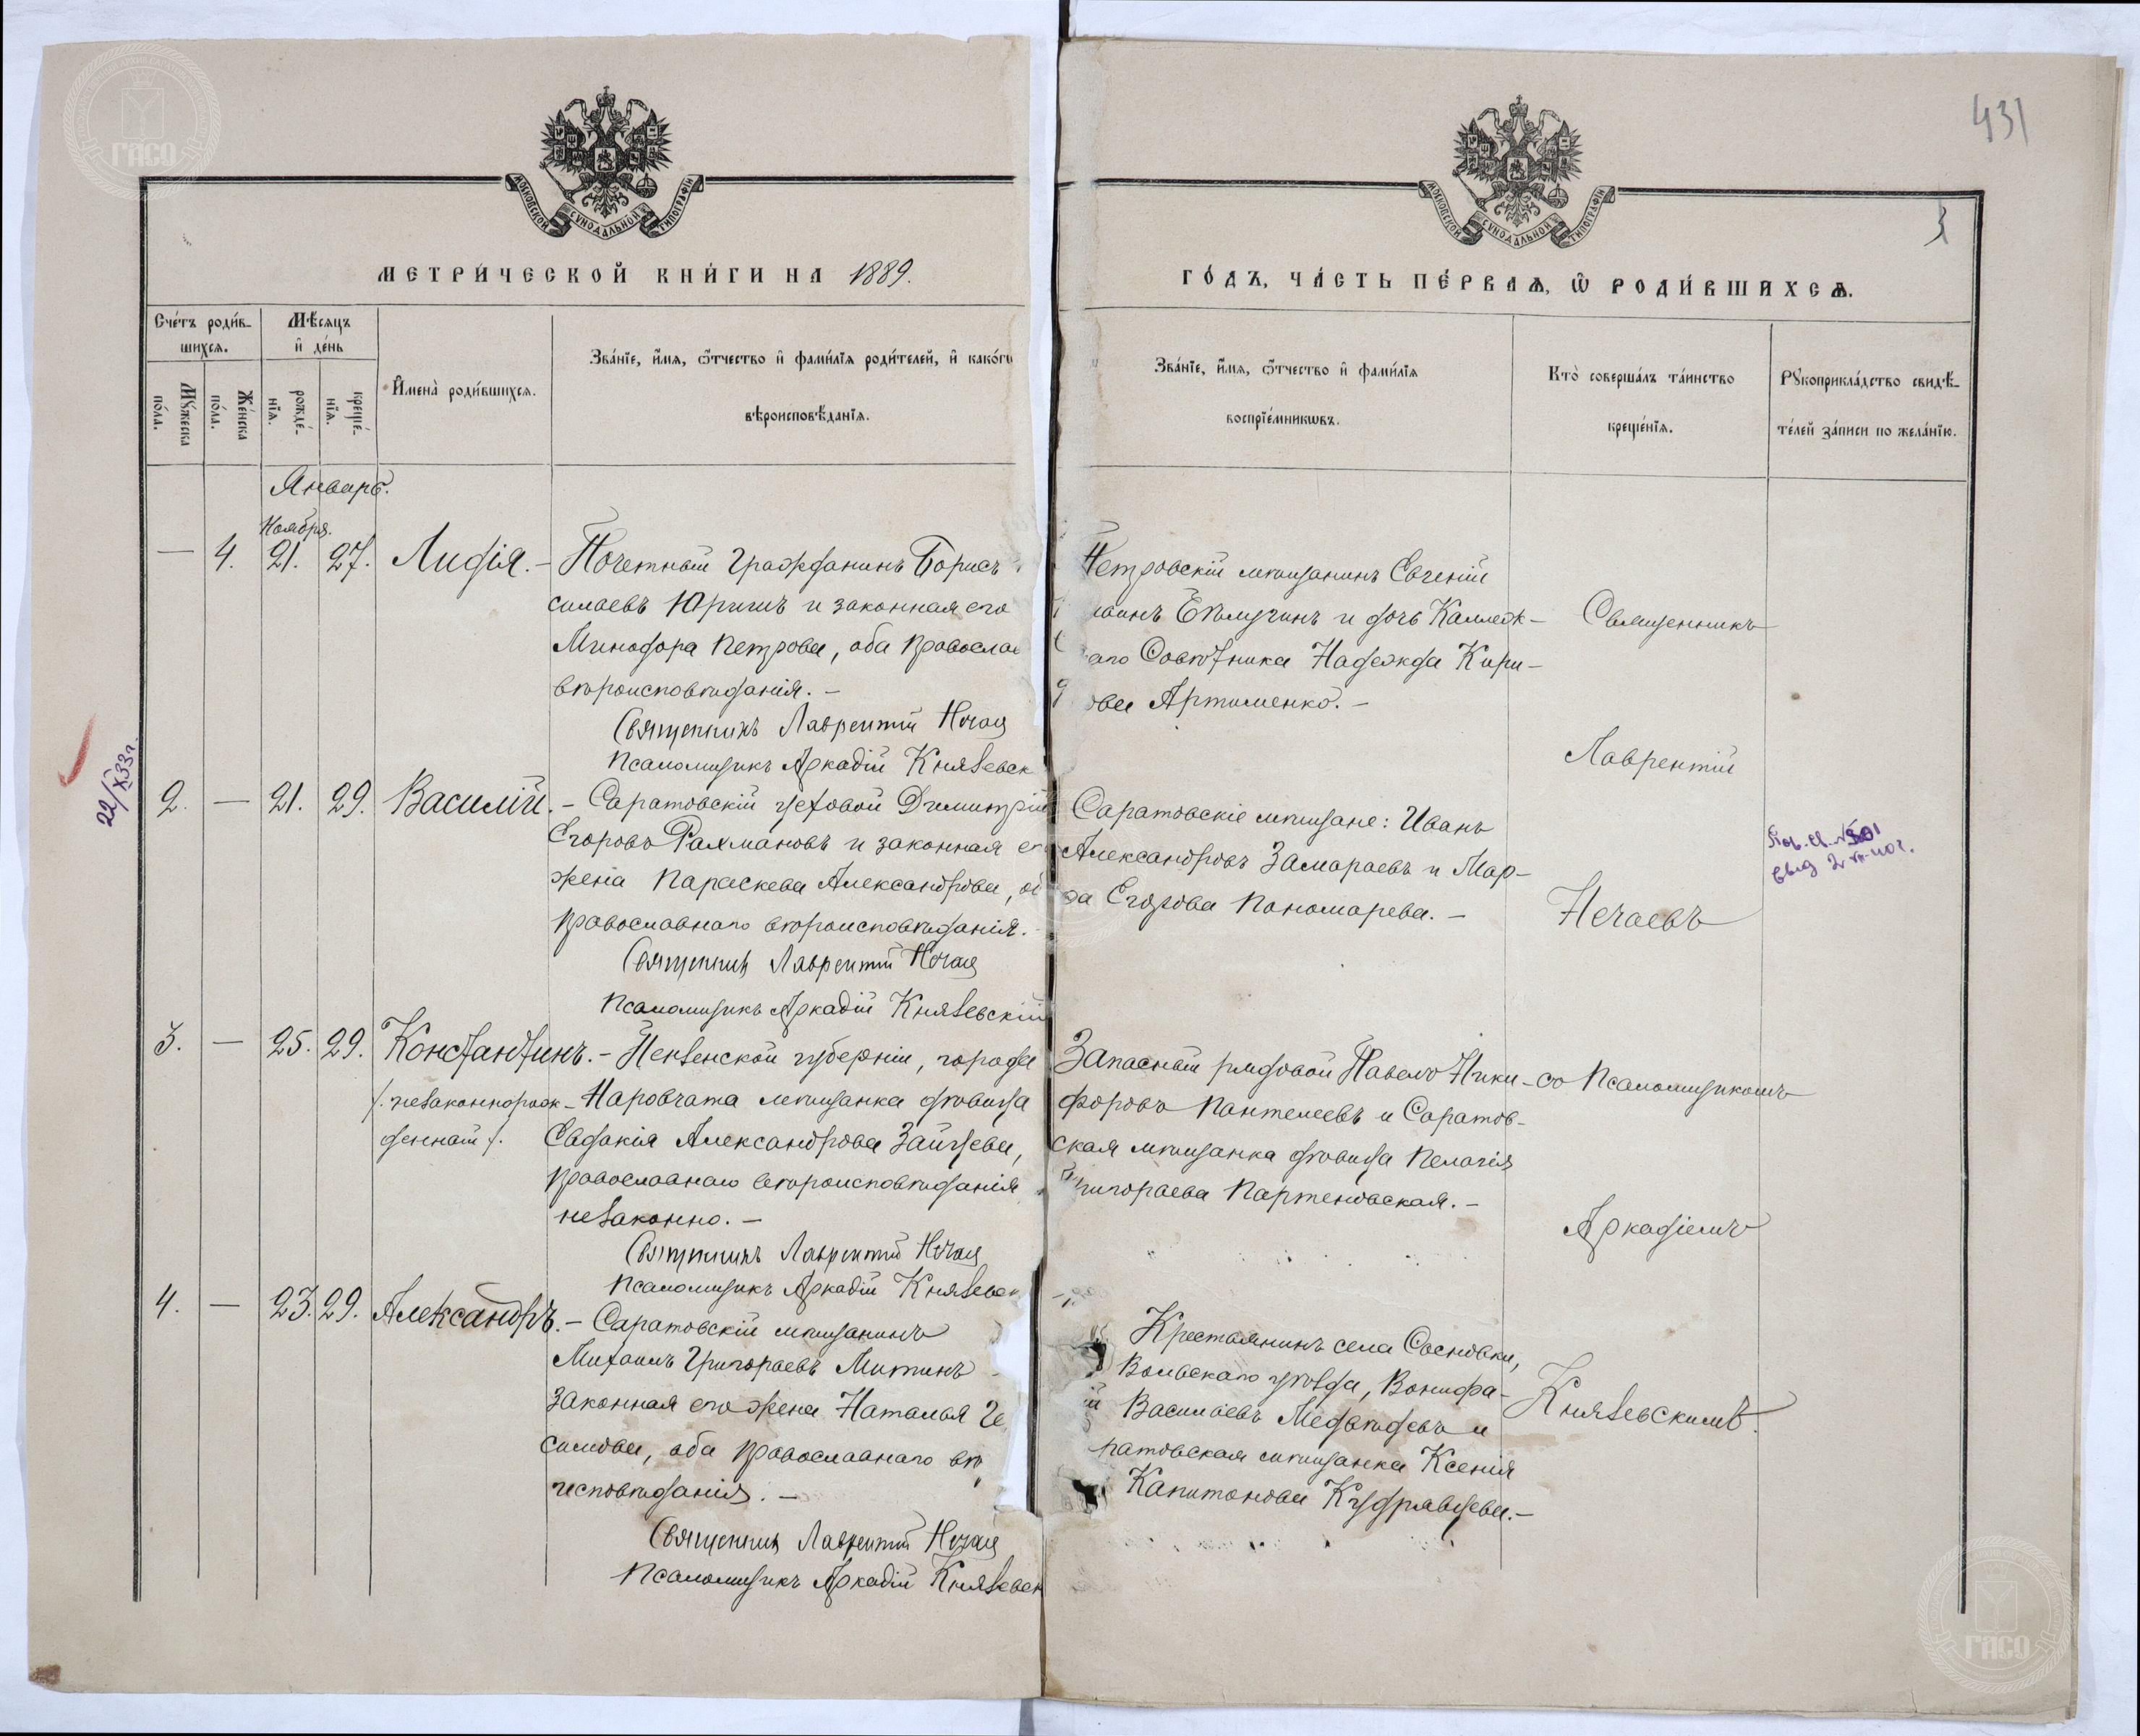 ГАСО
431
МОСКОВСКОЙ СѴНОДАЛЬНОЙ ТИПОГРАФІИ
МОСКОВСКОЙ СѴНОДАЛЬНОЙ ТИПОГРАФІИ
3
МЕТРИ́ЧЕСКОЙ КНИ́ГИ НА 1889.
ГО́ДЪ, ЧА́СТЬ ПЕ́РВАѦ, Ѡ҆ РОДИ́ВШИХСѦ.
Сче́тъ роди́в-
шихсѧ.
Мѣ́сѧцъ
и҆ де́нь
Мꙋ́жеска
по́ла.
Же́нска
по́ла.
рожде́-
нїѧ.
креще́-
нїѧ.
И҆мена̀ роди́вшихсѧ.
Зва́нїе, и҆́мѧ, ѻ҆́тчество и҆ фами́лїѧ роди́телей, и҆ како́гѡ
вѣроисповѣ́данїѧ.
Зва́нїе, и҆́мѧ, ѻ҆́тчество и҆ фами́лїѧ
воспрїе́мникѡвъ.
Кто̀ соверша́лъ та́инство
креще́нїѧ.
Рꙋкоприкла́дство свидѣ́-
телей за́писи по жела́нїю.
Январь.
Ноября.
— 4. 21. 27. Лидія. — Почетный Гражданинъ Борисъ
силаевъ Юричъ и законная его
Минодора Петрова, оба православ
вѣроисповѣданія. —
Священникъ Лаврентій Нечаев
Псаломщикъ Аркадій Князевск
Петровскій мѣщанинъ Евгеній
Екимучинъ и дочь Каллеж-
аго Совѣтника Надежда Кири-
ова Артименко. —
Священникъ
Лаврентій
22/X 33г.
2. — 21. 29. Василій. — Саратовскій цеховой Димитрій
Егоровъ Рахмановъ и законная ег
жена Параскева Александрова, об
православнаго вѣроисповѣданія.
Священник Лаврентій Нечаев
Псаломщикъ Аркадій Князевскій
Саратовскіе мѣщане: Иванъ
Александровъ Замараевъ и Мар-
ѳа Егорова Пономарева. —
Нечаевъ
3. — 25. 29. Константинъ. — Пензенской губерніи, города
/. незаконнорож- Наровчата мѣщанка дѣвица
денный /. Евдокія Александрова Зайцева,
православнаго вѣроисповѣданія
незаконно. —
Священникъ Лаврентій Нечаев
Псаломщикъ Аркадій Князевск
Запасный рядовой Павелъ Ники-
форовъ Пантелеевъ и Саратов-
ская мѣщанка дѣвица Пелагія
Григорьева Партеновская. —
со Псаломщикомъ
Аркадіемъ
4. — 23. 29. Александръ. — Саратовскій мѣщанинъ
Михаилъ Григорьевъ Митинъ
законная его жена Наталья Ге
симова, оба православнаго вѣ
исповѣданія. —
Священник Лаврентій Нечаев
Псаломщикъ Аркадій Князевск
Крестьянинъ села Сосновки,
Вольскаго уѣзда, Вонифа-
ій Васильевъ Медвѣдевъ и
ратовская мѣщанка Ксенія
Капитонова Кудрявцева. —
Князевскимъ.
ГАСО